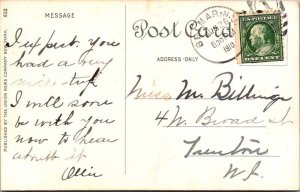 652
MESSAGE
Post Card
ADDRESS ONLY
PUBLISHED BY THE UNION NEWS COMPANY NEW YORK
I expect you
had a very
nice
I will soon
be with you
now to hear
about it
Ollie
BELMAR, N.J.
1910
U.S. POSTAGE
ONE CENT
Miss M. Billings
4 W. Broad St
Trenton
N.J.